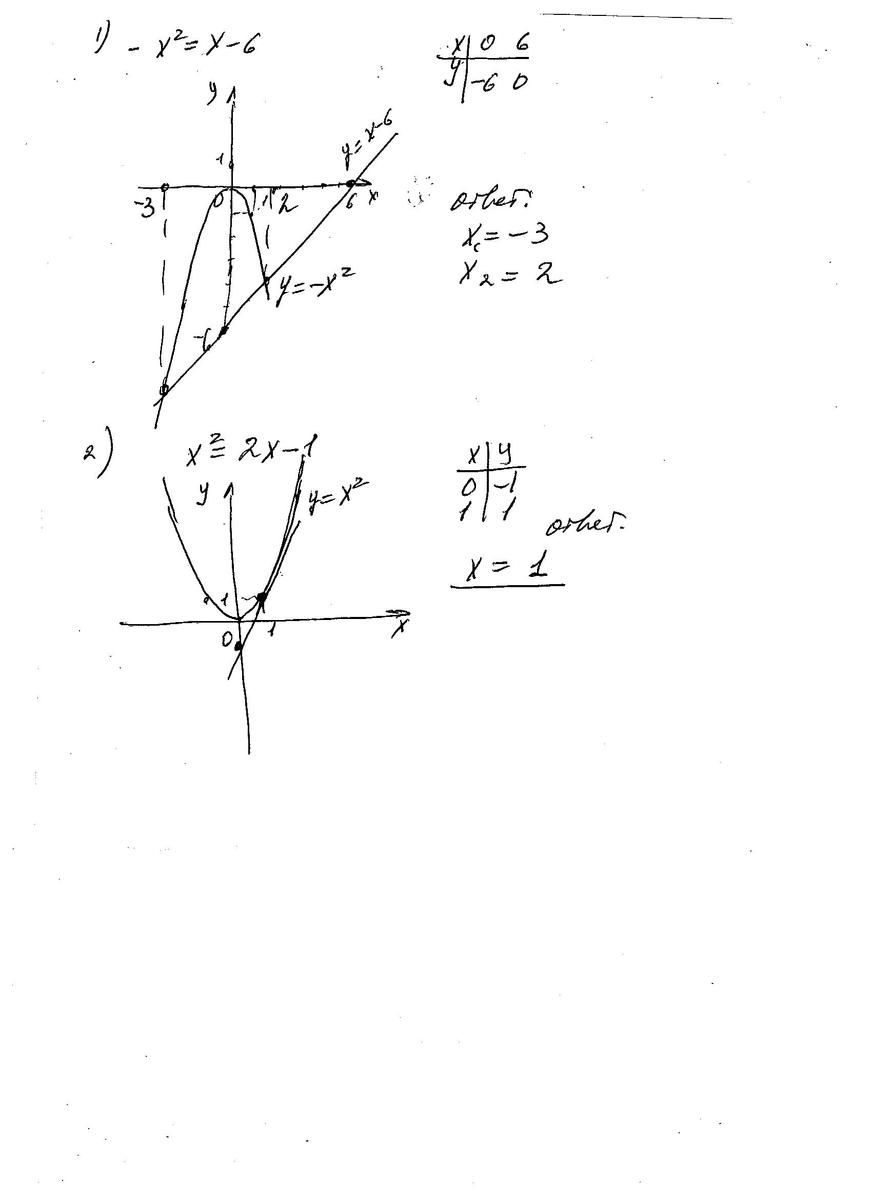 1) - x² = x - 6
x | 0 6
y | -6 0
y
y = x - 6
1
-3 0 1 2 6 x
ответ:
x₁ = -3
x₂ = 2
y = -x²
-6
2) x² = 2x - 1
x | y
0 | -1
1 | 1
y
y = x²
ответ:
x = 1
1
0 1 x